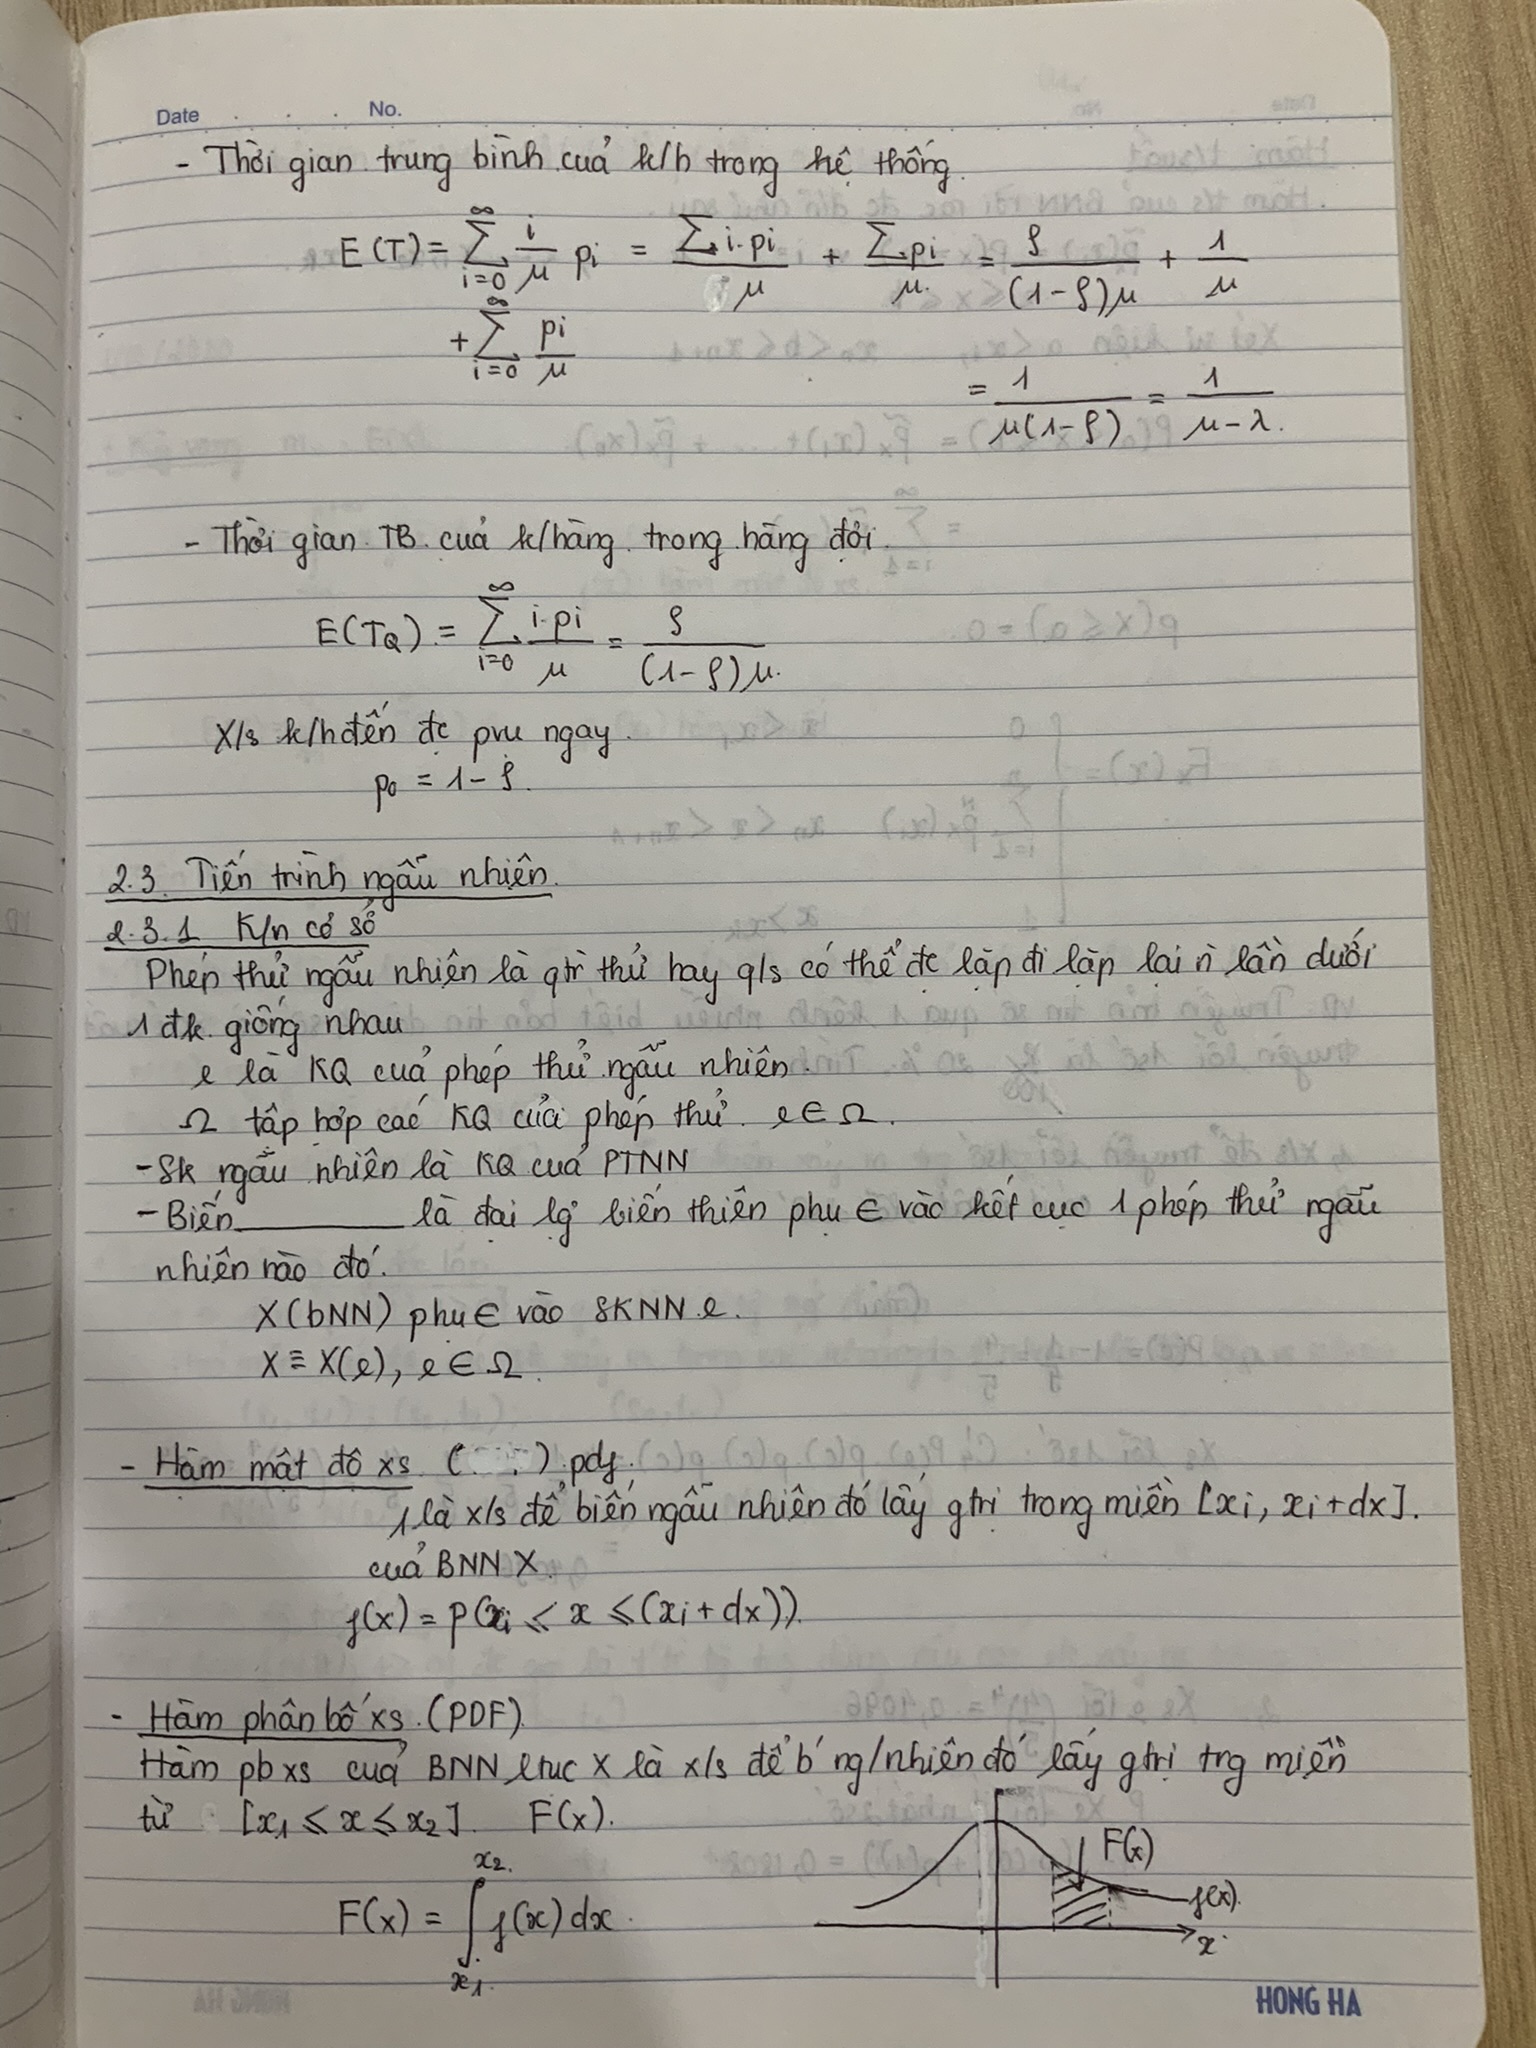 Date . . . . No.
- Thời gian trung bình của k/h trong hệ thống.
E(T) = ∑_{i=0}^{∞} i/μ pi + ∑_{i=0}^{∞} pi/μ = ∑i.pi/μ + ∑pi/μ = ρ/((1-ρ)μ) + 1/μ
= 1/(μ(1-ρ)) = 1/(μ-λ).
- Thời gian TB của k/hàng trong hàng đợi.
E(TQ) = ∑_{i=0}^{∞} i.pi/μ = ρ/((1-ρ)μ).
X/s k/h đến đc pvụ ngay.
p0 = 1-ρ.
2.3. Tiến trình ngẫu nhiên.
2.3.1 K/n cơ sở
Phép thử ngẫu nhiên là qtr thử hay q/s có thể đc lặp đi lặp lại n lần dưới
1 đk giống nhau
e là KQ của phép thử ngẫu nhiên.
Ω tập hợp các KQ của phép thử. e∈Ω.
- Sk ngẫu nhiên là KQ của PTNN
- Biến ________ là đại lg biến thiên phụ ∈ vào kết cục 1 phép thử ngẫu
nhiên nào đó.
X(bNN) phụ ∈ vào SKNN e.
X ≡ X(e), e ∈ Ω.
- Hàm mật độ xs ( ) pdf.
1 là x/s để biến ngẫu nhiên đó lấy gtrị trong miền [xi, xi+dx].
của BNN X.
f(x) = p(xi ≤ x ≤ (xi+dx)).
- Hàm phân bố xs. (PDF).
Hàm pb xs của BNN ltục X là x/s để b' ng/nhiên đó lấy gtrị trg miền
từ [x1 ≤ x ≤ x2]. F(x).
F(x) = ∫_{x1}^{x2} f(x)dx.
F(x)
f(x).
x.
HONG HA